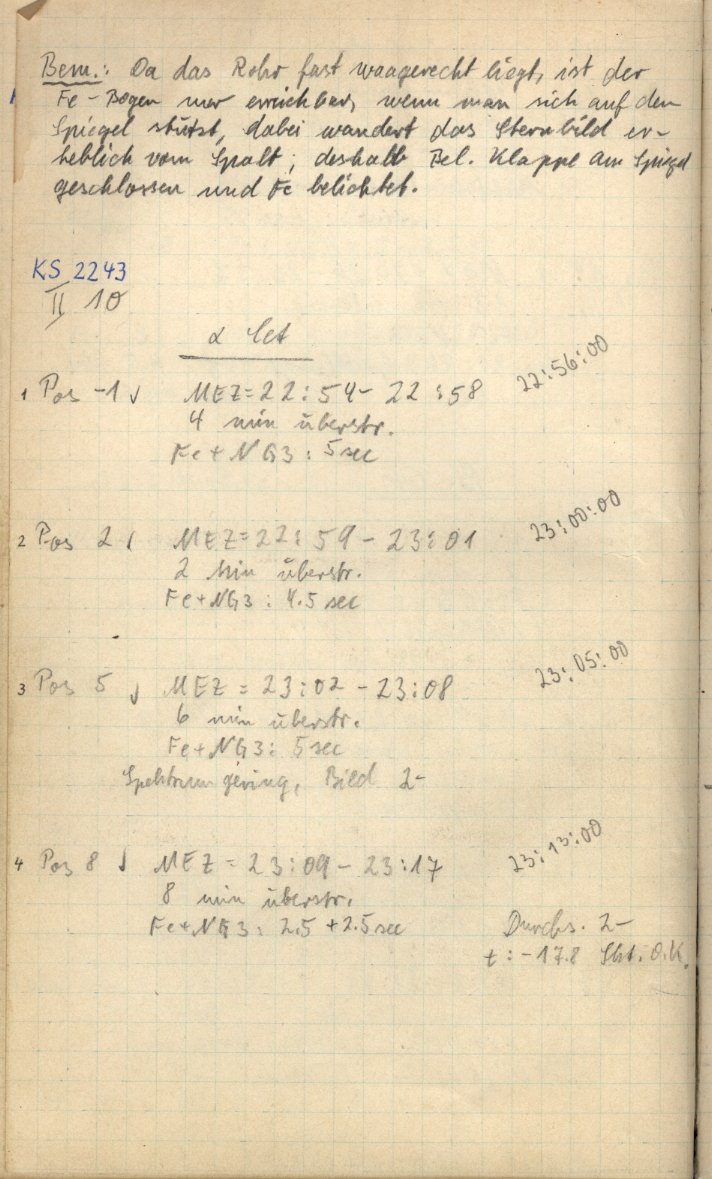 Bem.: Da das Rohr fast waagerecht liegt, ist der
Fe-Bogen nur erreichbar, wenn man sich auf den
Spiegel stützt, dabei wandert das Sternbild er-
heblich vom Spalt; deshalb Bel. Klappe am Spiegel
geschlossen und Fe belichtet.
KS 2243
II 10
α Cet
1 Pos -1 ↓ MEZ=22:54-22:58 22:56:00
4 min überstr.
Fe+NG3: 5 sec
2 Pos 2 MEZ=22:59-23:01 23:00:00
2 Min überstr.
Fe+NG3: 4.5 sec
3 Pos 5 ↓ MEZ = 23:02-23:08 23:05:00
6 min überstr.
Fe+NG3: 5 sec
Spektrum gering, Bild 2-
4 Pos 8 ↓ MEZ = 23:09-23:17 23:13:00
8 min überstr.
Fe+NG3: 2.5+2.5 sec
Durchs. 2-
t: -17.8 O.K.